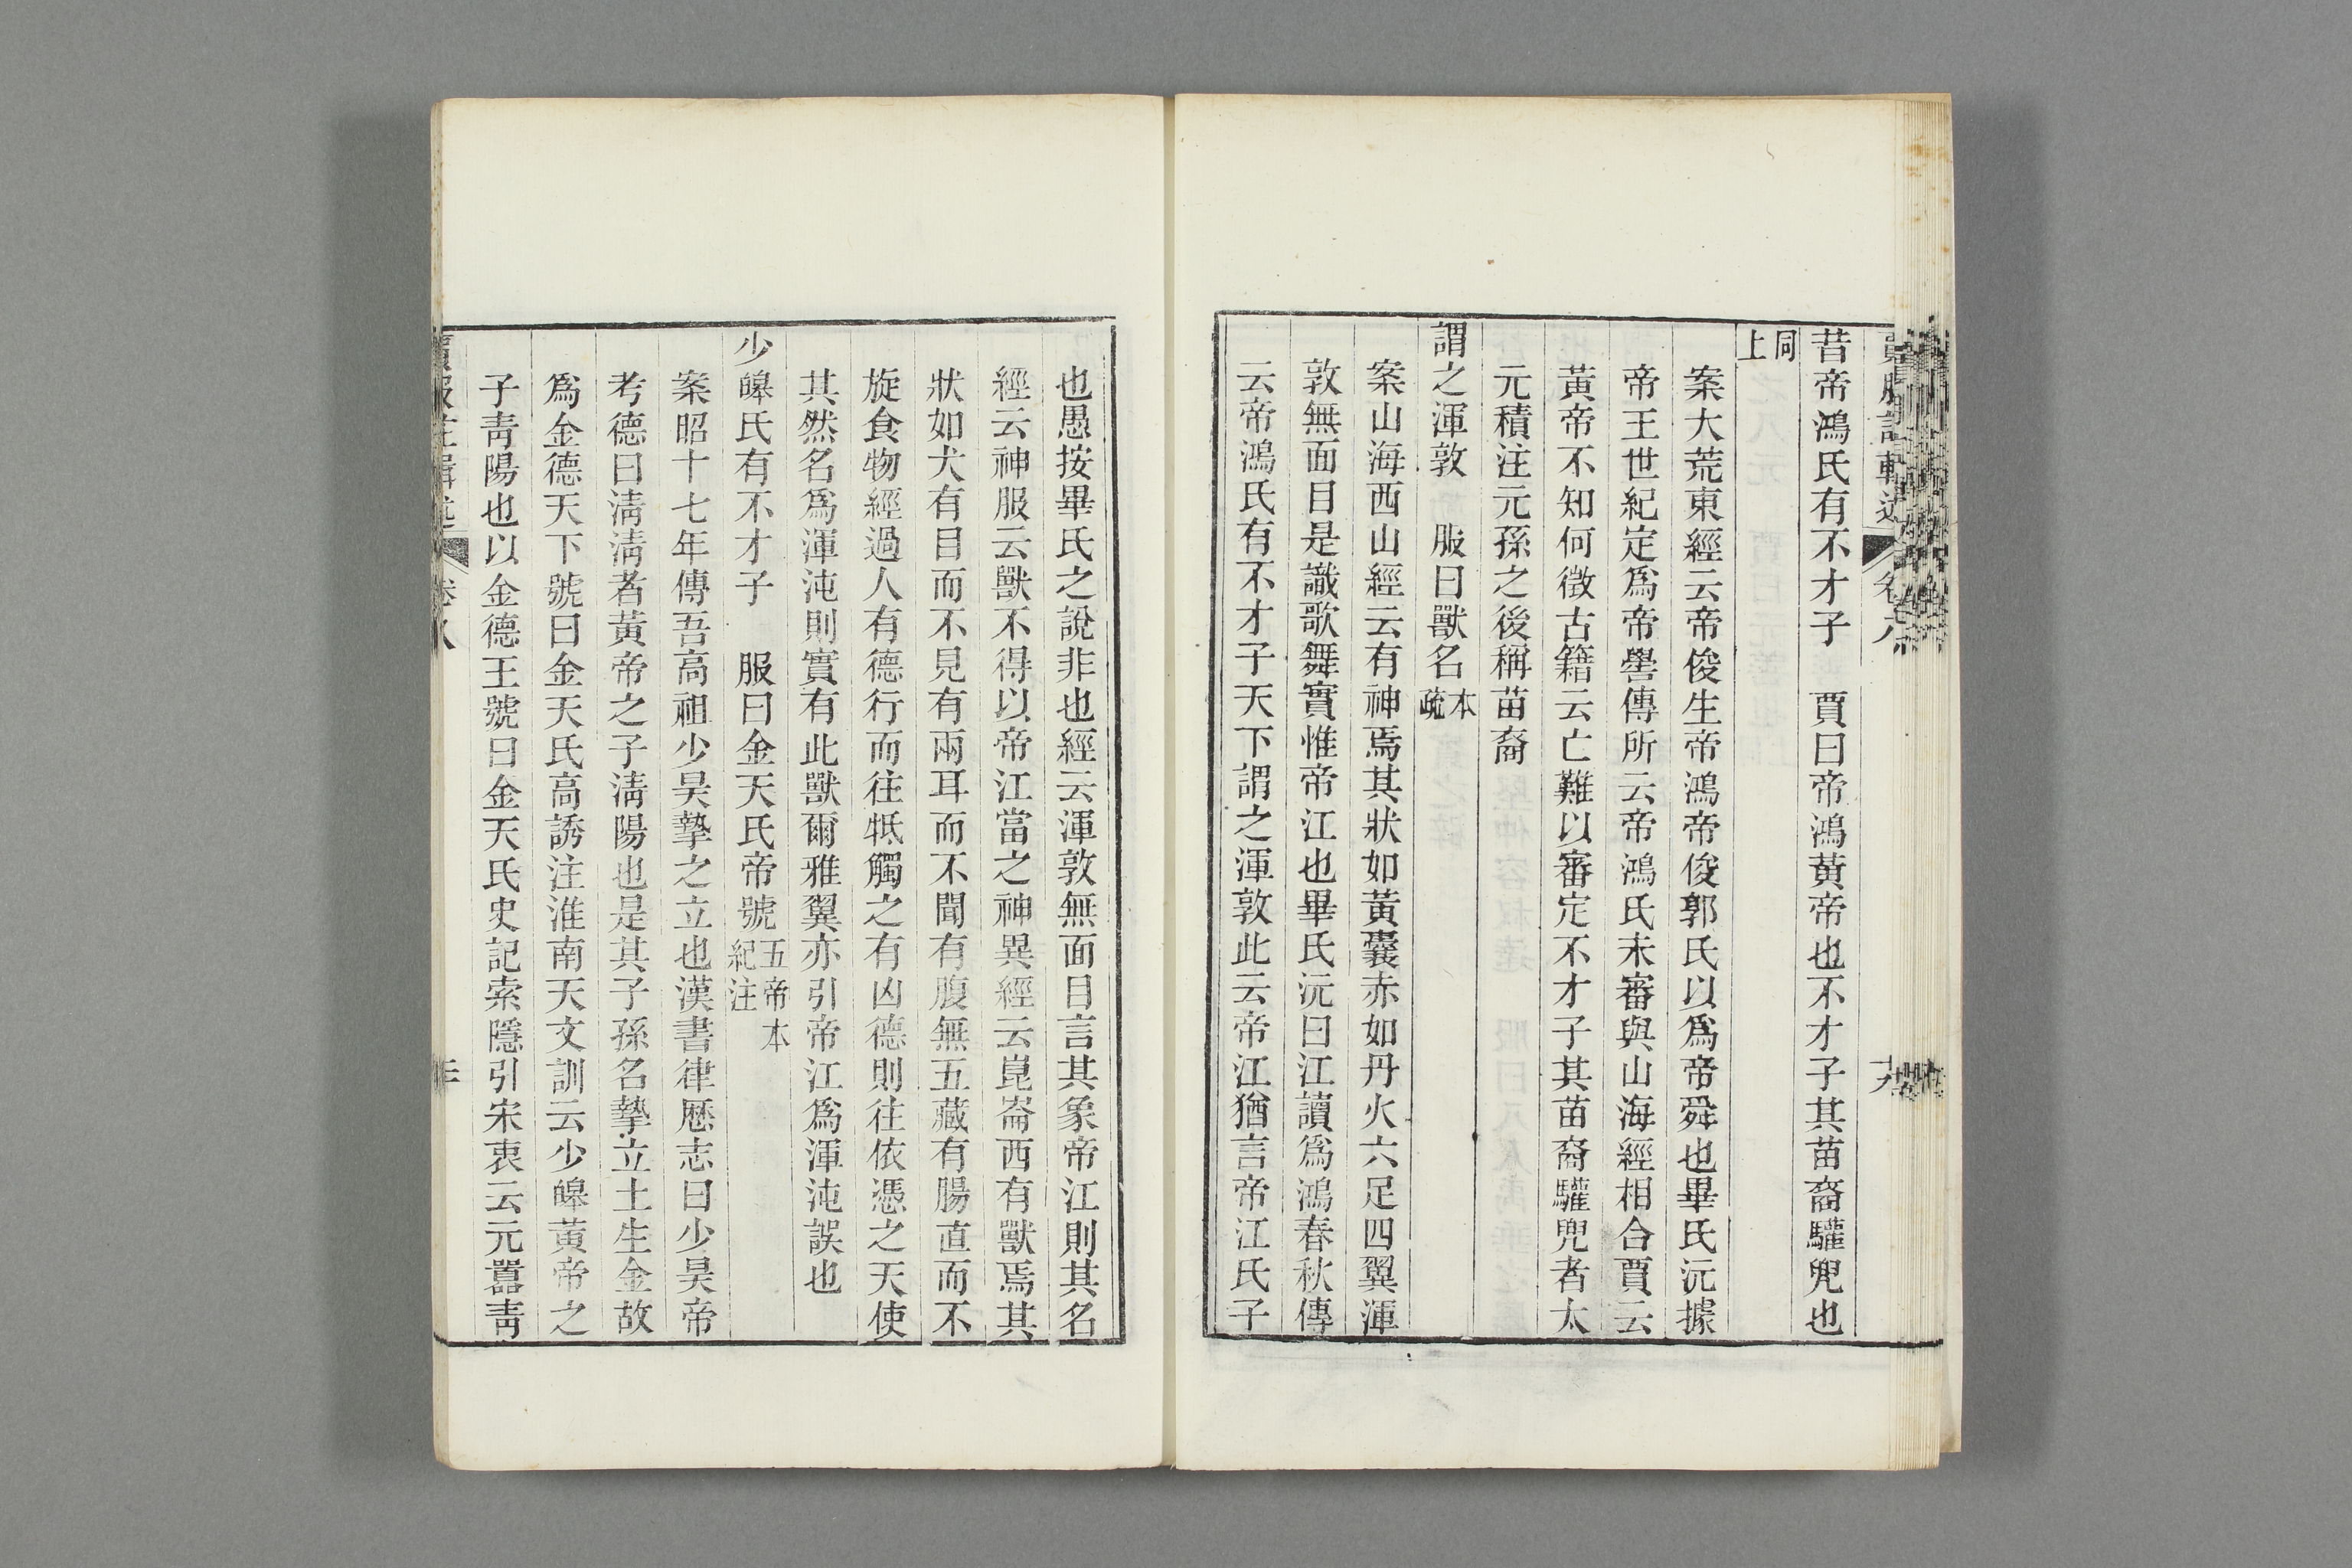 昔帝鴻氏有不才子　賈曰帝鴻黃帝也不才子其苗裔驩兜也
同上
案大荒東經云帝俊生帝鴻帝俊郭氏以爲帝舜也畢氏沅據
帝王世紀定爲帝嚳傳所云帝鴻氏未審與山海經相合賈云
黃帝不知何徵古籍云亡難以審定不才子其苗裔驩兜者太
元積注元孫之後稱苗裔
謂之渾敦　服曰獸名本疏
案山海西山經云有神焉其狀如黃囊赤如丹火六足四翼渾
敦無面目是識歌舞實惟帝江也畢氏沅曰江讀爲鴻春秋傳
云帝鴻氏有不才子天下謂之渾敦此云帝江猶言帝江氏子
也愚按畢氏之說非也經云渾敦無面目言其象帝江則其名
經云神服云獸不得以帝江當之神異經云崑崙西有獸焉其
狀如犬有目而不見有兩耳而不聞有腹無五藏有腸直而不
旋食物經過人有德行而往牴觸之有凶德則往依憑之天使
其然名爲渾沌則實有此獸爾雅翼亦引帝江爲渾沌誤也
少皞氏有不才子　服曰金天氏帝號五帝本紀注
案昭十七年傳吾高祖少昊摯之立也漢書律歷志曰少昊帝
考德曰淸淸者黃帝之子淸陽也是其子孫名摯立土生金故
爲金德天下號曰金天氏高誘注淮南天文訓云少皞黃帝之
子靑陽也以金德王號曰金天氏史記索隱引宋衷云元囂靑
賈服注輯述　卷八